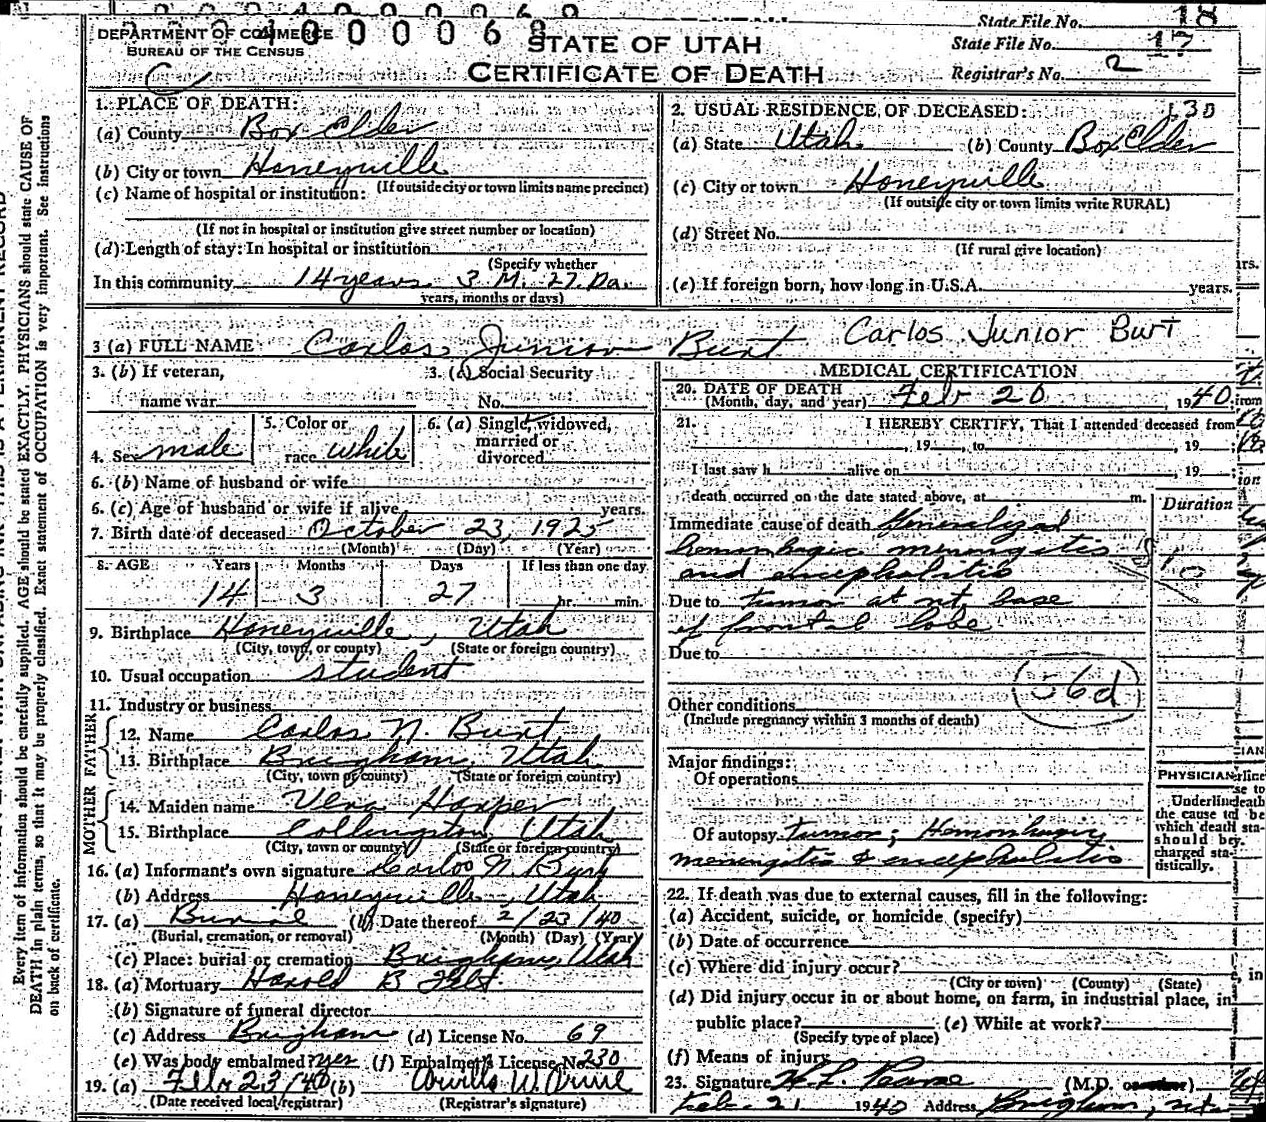 DEPARTMENT OF COMMERCE
BUREAU OF THE CENSUS
STATE OF UTAH
CERTIFICATE OF DEATH
State File No. 18
State File No. 17
Registrar's No. 2
1. PLACE OF DEATH:
(a) County Box Elder
(b) City or town Honeyville
(If outside city or town limits name precinct)
(c) Name of hospital or institution:
(If not in hospital or institution give street number or location)
(d) Length of stay: In hospital or institution
(Specify whether
In this community 14 years 3 M. 27 Da.
years, months or days)
2. USUAL RESIDENCE OF DECEASED: 130
(a) State Utah (b) County Box Elder
(c) City or town Honeyville
(If outside city or town limits write RURAL)
(d) Street No.
(If rural give location)
(e) If foreign born, how long in U.S.A. years.
3 (a) FULL NAME Carlos Junior Burt Carlos Junior Burt
3. (b) If veteran, name war
3. (c) Social Security No.
4. Sex male
5. Color or race white
6. (a) Single, widowed, married or divorced
6. (b) Name of husband or wife
6. (c) Age of husband or wife if alive years.
7. Birth date of deceased October 23, 1925
(Month) (Day) (Year)
8. AGE Years Months Days If less than one day
14 3 27 hr. min.
9. Birthplace Honeyville, Utah
(City, town, or county) (State or foreign country)
10. Usual occupation student
11. Industry or business
FATHER
12. Name Carlos N. Burt
13. Birthplace Brigham, Utah
(City, town or county) (State or foreign country)
MOTHER
14. Maiden name Vera Harper
15. Birthplace Collingston, Utah
(City, town or county) (State or foreign country)
16. (a) Informant's own signature Carlos N. Burt
(b) Address Honeyville, Utah
17. (a) Burial (b) Date thereof 2/23/40
(Burial, cremation, or removal) (Month) (Day) (Year)
(c) Place: burial or cremation Brigham, Utah
18. (a) Mortuary Harold B Felt
(b) Signature of funeral director
(c) Address Brigham (d) License No. 69
(e) Was body embalmed? yes (f) Embalmer's License No. 230
19. (a) Feb 23/40 (b)
(Date received local registrar) (Registrar's signature)
MEDICAL CERTIFICATION
20. DATE OF DEATH Feb 20, 1940
(Month, day, and year)
21. I HEREBY CERTIFY, That I attended deceased from
, 19 , to , 19 ;
I last saw h alive on , 19 ;
death occurred on the date stated above, at m.
Duration
Immediate cause of death Generalized
hemorrhagic meningitis
and encephalitis
Due to tumor at rt. base
of frontal lobe
Due to
56d
Other conditions
(Include pregnancy within 3 months of death)
Major findings:
Of operations
Of autopsy tumor; Hemorrhagic
meningitis & encephalitis
PHYSICIAN
Underline
the cause to
which death
should be
charged sta-
tistically.
22. If death was due to external causes, fill in the following:
(a) Accident, suicide, or homicide (specify)
(b) Date of occurrence
(c) Where did injury occur?
(City or town) (County) (State)
(d) Did injury occur in or about home, on farm, in industrial place, in
public place? (e) While at work?
(Specify type of place)
(f) Means of injury
23. Signature (M.D. or other)
Feb. 21 1940 Address Brigham, Utah
Every item of information should be carefully supplied. AGE should be stated EXACTLY. PHYSICIANS should state CAUSE OF
DEATH in plain terms, so that it may be properly classified. Exact statement of OCCUPATION is very important. See instructions
on back of certificate.